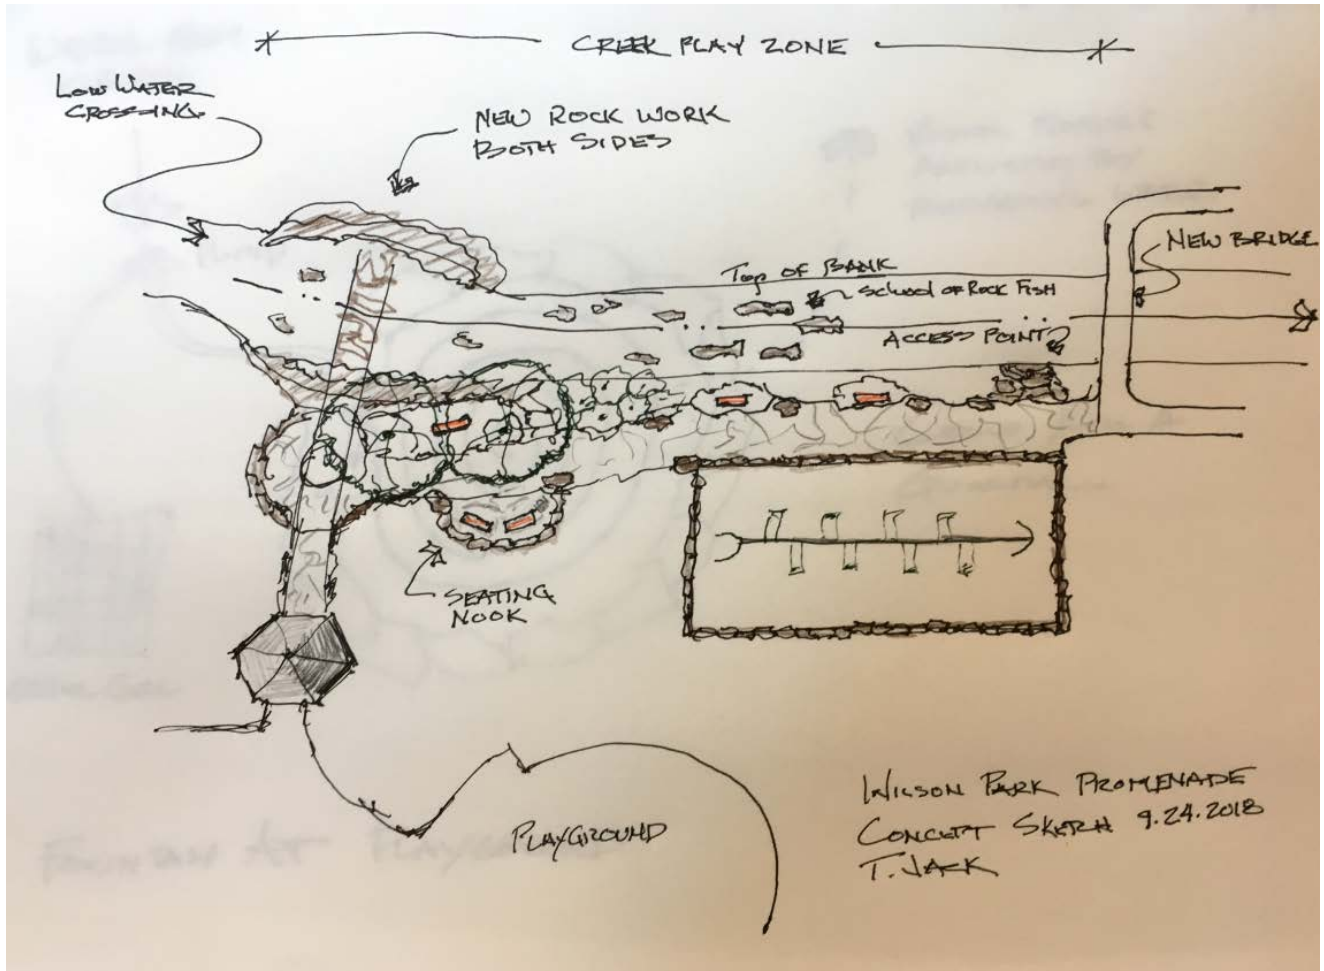 CREEK PLAY ZONE
LOW WATER
CROSSING
NEW ROCK WORK
BOTH SIDES
NEW BRIDGE
TOP OF BANK
SCHOOL OF ROCK FISH
ACCESS POINT
SEATING
NOOK
PLAYGROUND
WILSON PARK PROMENADE
CONCEPT SKETCH 9.24.2018
T. JACK
FOUNTAIN AT PLAYGROUND